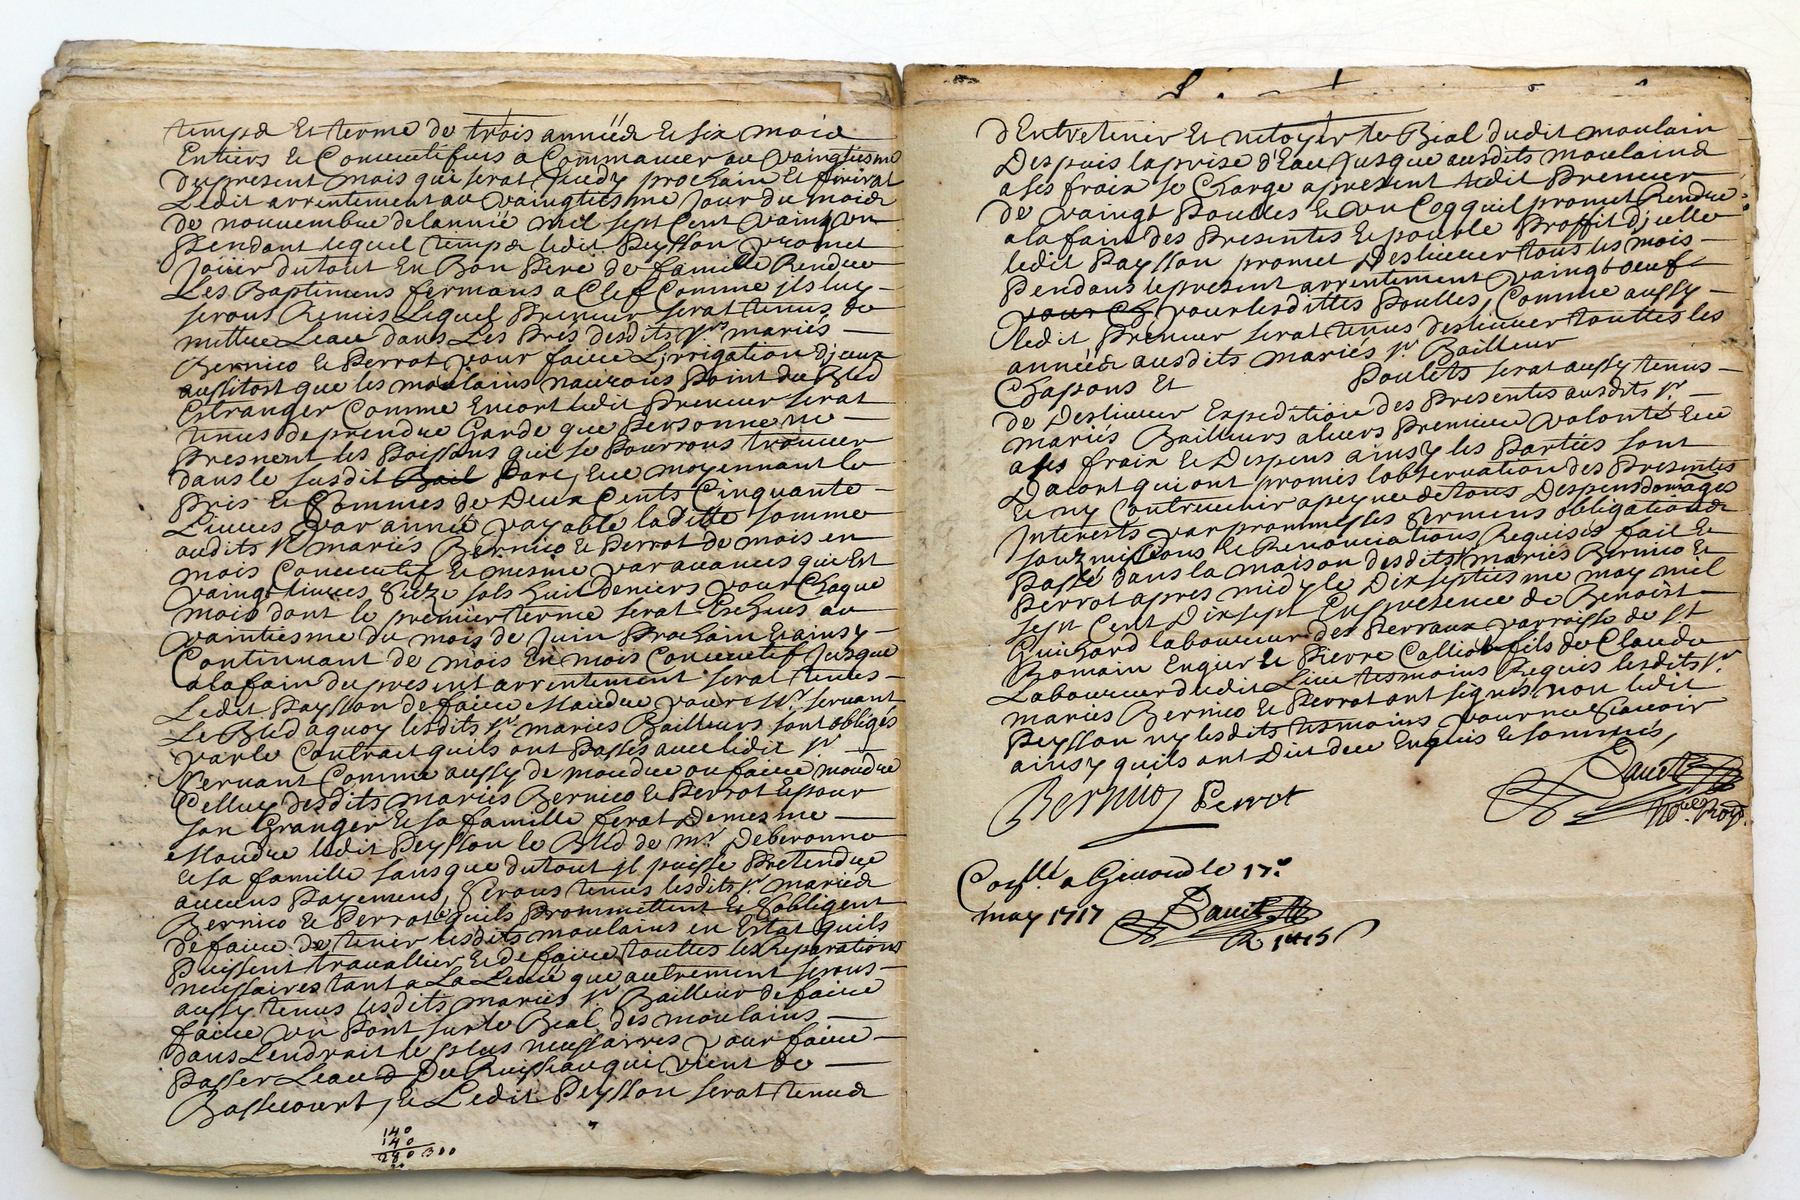 temps Et terme de trois années Et six mois
Entiers Et Consecutifs a Commancer au vaingtiesme
du present mois qui serat Jeudy prochain Et finirat
Ledit arrentement au vaingtiesme Jour du mois
de nouvembre de lannée mil sept Cent vaingt un
Pendant lequel temps ledit Peysson promet
Joüir du tout En Bon Pere de famille Rendre
Les Baptimens fermans a Clef Comme jls luy
seront Remis Lequel Premier serat tenus de
mettre Leau dans Les Prés desdits srs mariés
Bernico Et Perrot pour faire Lirrigation djceux
aussitost que les moulains nauront Point du Bled
Estranger Comme Encort ledit Premier serat
tenus de prendre Garde que Personne ne
Presnent les Poissons qui se Pourront trouver
dans le susdit Bail Parc, Et ce moyennant le
Pris Et sommes de Deux Cents Cinquante
Livres par année payable laditte somme
audits sr mariés Bernico Et Perrot de mois en
mois Consecutif Et mesme par avances qui Est
vaingt livres seize sols huit deniers pour Chaque
mois dont le premier terme serat Escheus au
vaintiesme du mois de Juin Prochain Et ainsy
Continuant de mois En mois Consecutif Jusque
a la fain du present arrentement serat tenus
Ledit Paysson de faire Maudre pour Mr. servant
Le Bled a quoy lesdits sr mariés Bailleurs sont obligés
par le Contrait quils ont Passés avec ledit sr
servant Comme aussy de moudre ou faire moudre
Celluy desdits mariés Bernico Et Perrot Et pour
son Granger Et sa famille ferat De mesme
Maudre ledit Peysson le Bled de mr. Deberonne
Et sa famille sans que du tout jl puisse Pretendre
aucuns Payemens, serons tenus lesdits sr mariés
Bernico Et Perrot Et quils Promettent Et sobligent
de faire de tenir lesdits moulains en Estat quils
Puissent travallier Et de faire touttes les Reparations
nessaires tant a La Leuée que autrement serons
aussy tenus lesdits mariés sr Bailleur de faire
faire un Pont sur le Beal des moulains
dans Lendrait le plus nessaires pour faire
Passer Leau du Ruisseau qui vient de
Bassecourt, Et Ledit Peysson serat tenus
140
140
280 300
d'Entretenir Et netoyer le Bial dudit moulain
Despuis la prise d'Eau Jusque ausdits moulains
a ses fraix se Charge a present ledit Premier
de vaingt Poulles Et un Coq quil promet Rendre
a la fain des Presentes Et pour le Proffit djcelle
ledit Paysson promet Deslivrer tous les mois
Pendans le present arrentement vaingt oeuf
pour Ch pour lesdittes Poulles, Comme aussy
ledit Premier serat tenus deslivrer touttes les
années ausdits mariés sr. Bailleur
Chappons Et Poulets serat aussy tenus
de Deslivrer Expedition des Presentes ausdits sr
mariés Bailleurs a leurs Premiere volonté Et ce
a ses fraix Et Despens ainsy les Parties sont
Dacort qui ont promis lobservation des Presentes
Et ny Contrevenir a peyne de tous Despens domages
Interests par prommesses sermens obligations
soubzmissions Et Renonciations Requises fait Et
Passé dans la maison desdits sr mariés Bernico Et
Perrot apres midy le Dix septiesme may mil
sept Cent Dix sept En presence de Benoist
Guichard laboureur des Perraux parroisse de st
Romain Et Pierre Calliot fils de Claude
Laboureur dudit Lieu tesmoins Requis lesdits sr.
mariés Bernico Et Perrot ont signés non ledit
Peysson ny lesdits tesmoins pour ne scavoir
ainsy quils ont Dit de ce Enquis Et sommés,
Bernico Perrot
Nore. Royal.
a Givord le 17e
may 1717
R 14s